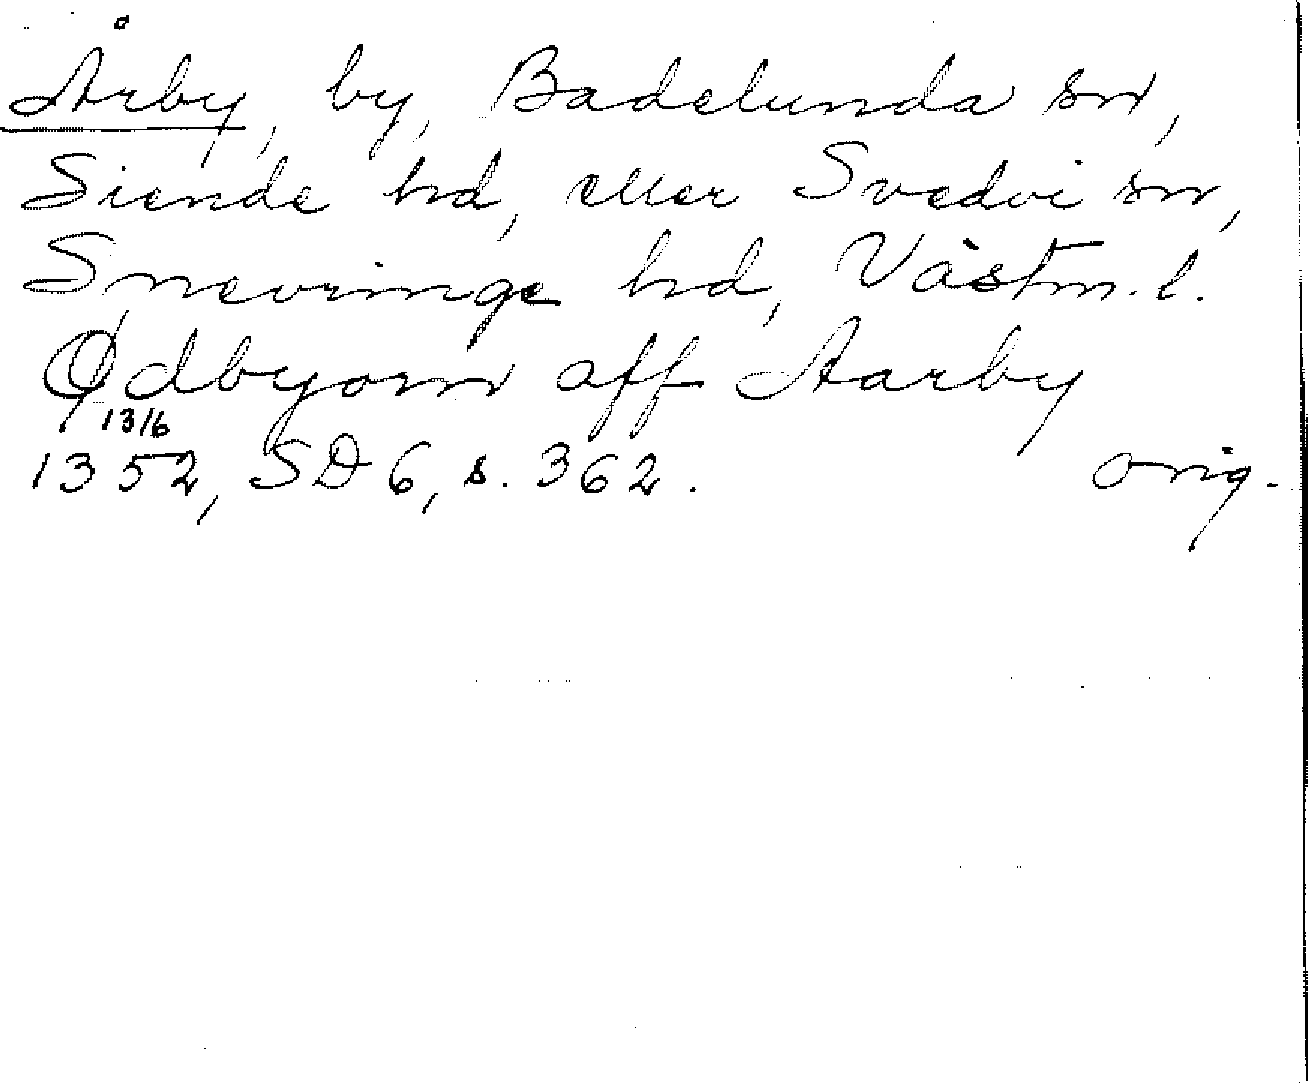 Årby, by, Badelunda sn,
Siende hd, eller Svedvi sn,
Snevringe hd, Västm. l.
Ødbyorn aff Aarby
13/6
1352, SD 6, s. 362. orig.